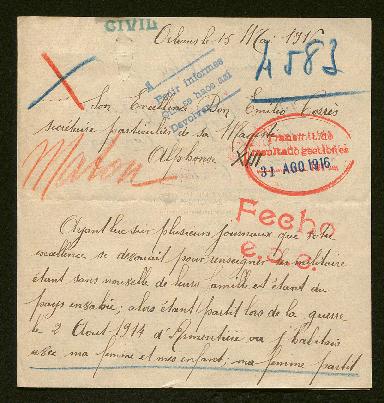 CIVIL
Orleans le 15 Mai 1916
4583
A
Pedir informes
Que se haos asi
Devolver
Son Excellence Don Emilio Torrès
secrétaire particulier de sa Majesté
Alphonse XIII
Maton
Transmitido
31 AGO 1916
Fecho
e.s.e.
Ayant lue sur plusieurs journaux que votre
excellence se devouait pour renseigner les militaire
étant sans nouvelle de leurs famille et étant du
pays envahie; alors étant partit lors de la guerre
le 2 Aout 1914 d'Armentière ou j'habitais
avec ma femme et mes enfant; ma femme partit